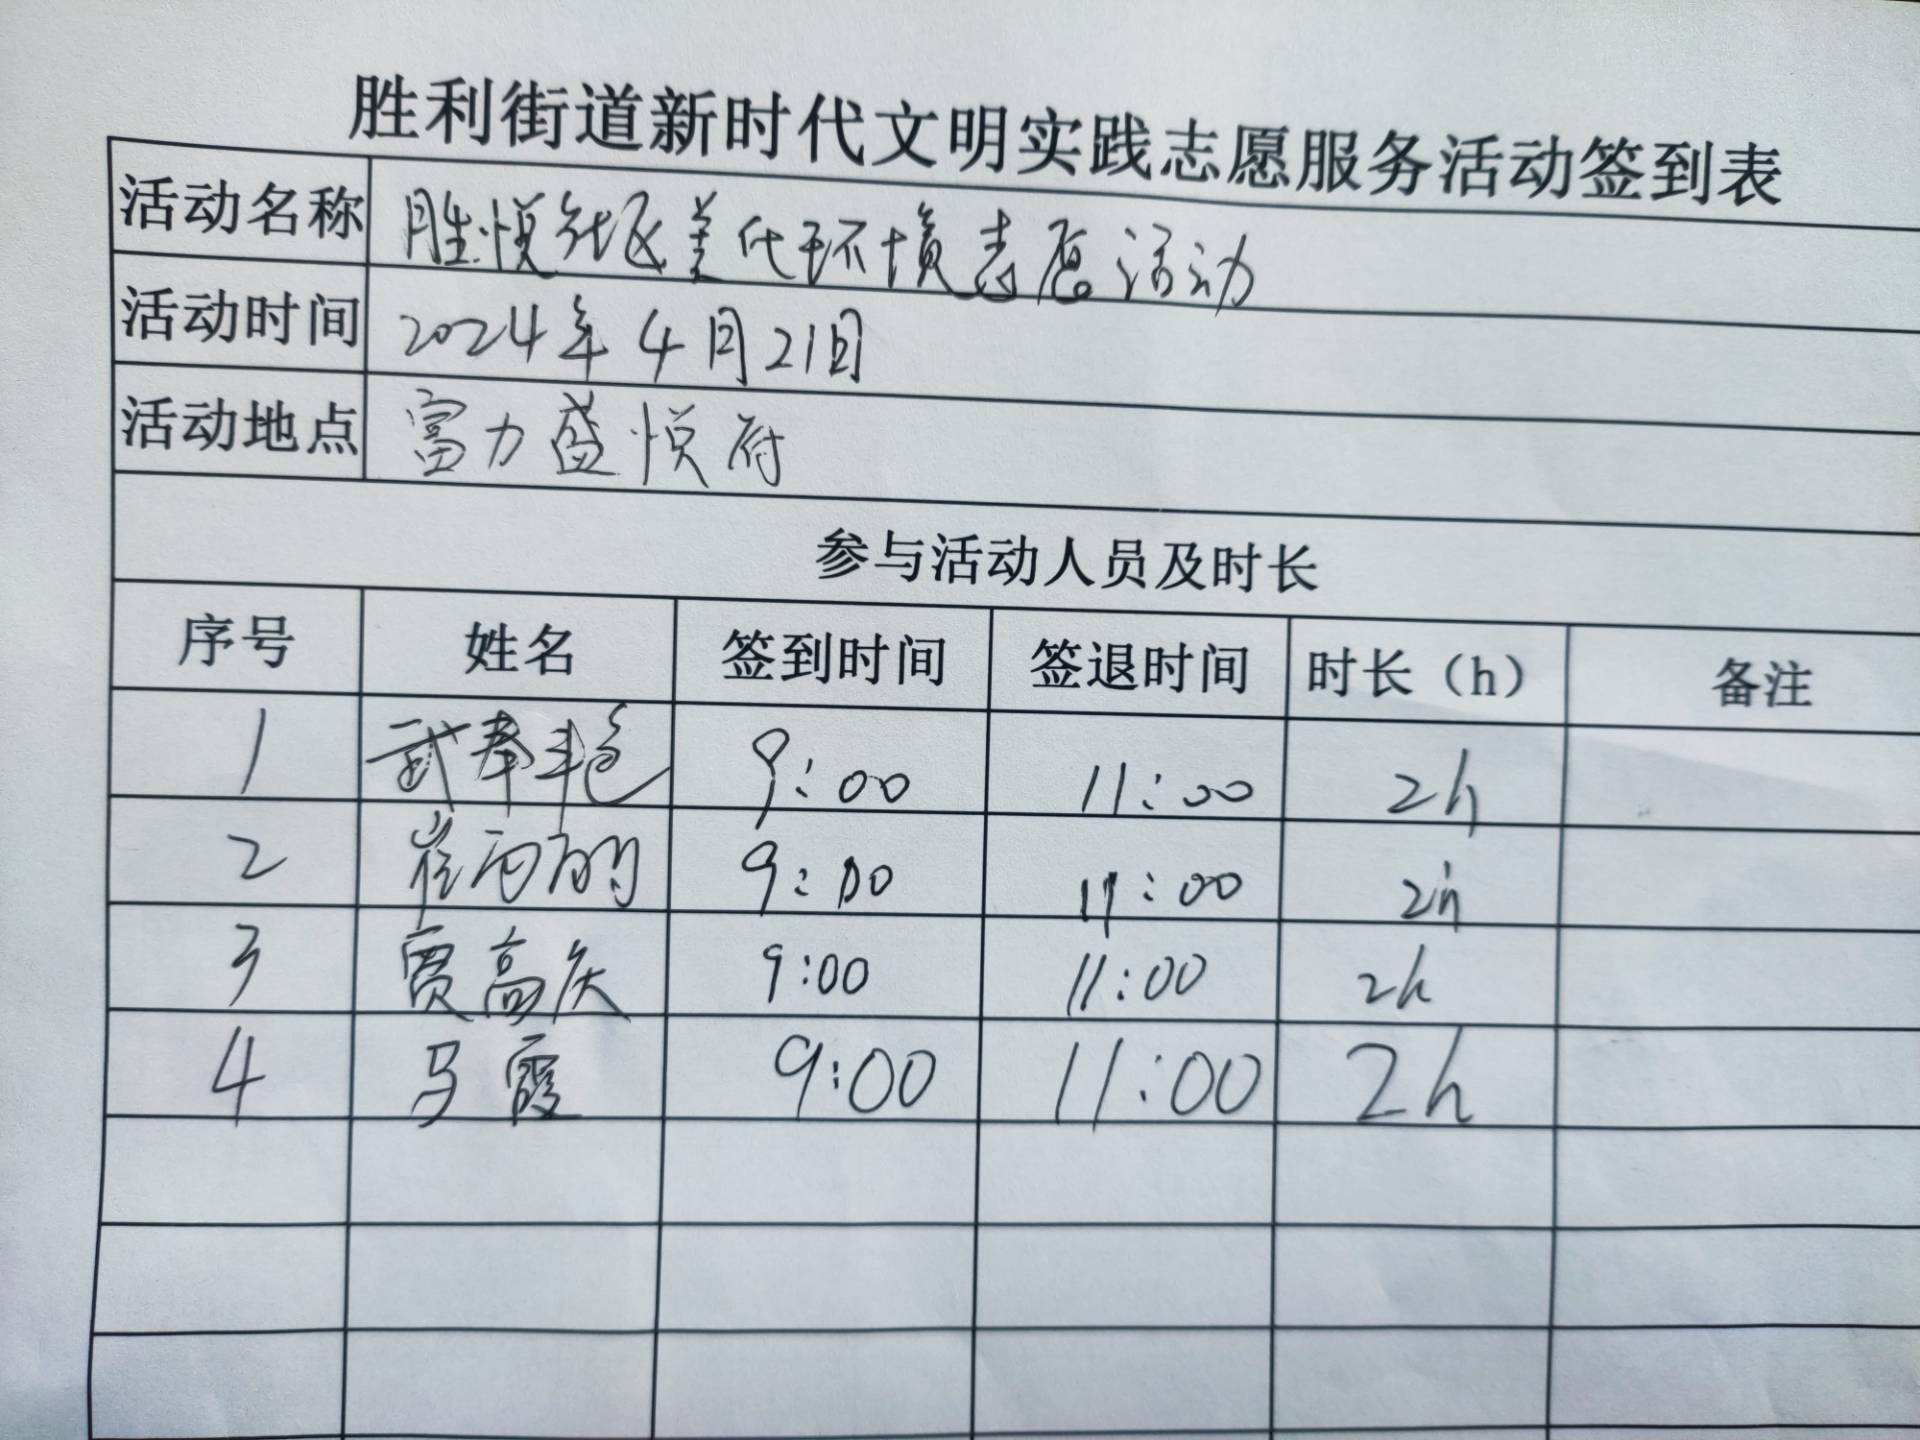 胜利街道新时代文明实践志愿服务活动签到表
活动名称 胜悦社区美化环境志愿活动
活动时间 2024年4月21日
活动地点 富力盛悦府
参与活动人员及时长
序号 姓名 签到时间 签退时间 时长（h） 备注
1 武奉 9:00 11:00 2h
2 崔丽 9:00 11:00 2h
3 贾高庆 9:00 11:00 2h
4 马霞 9:00 11:00 2h